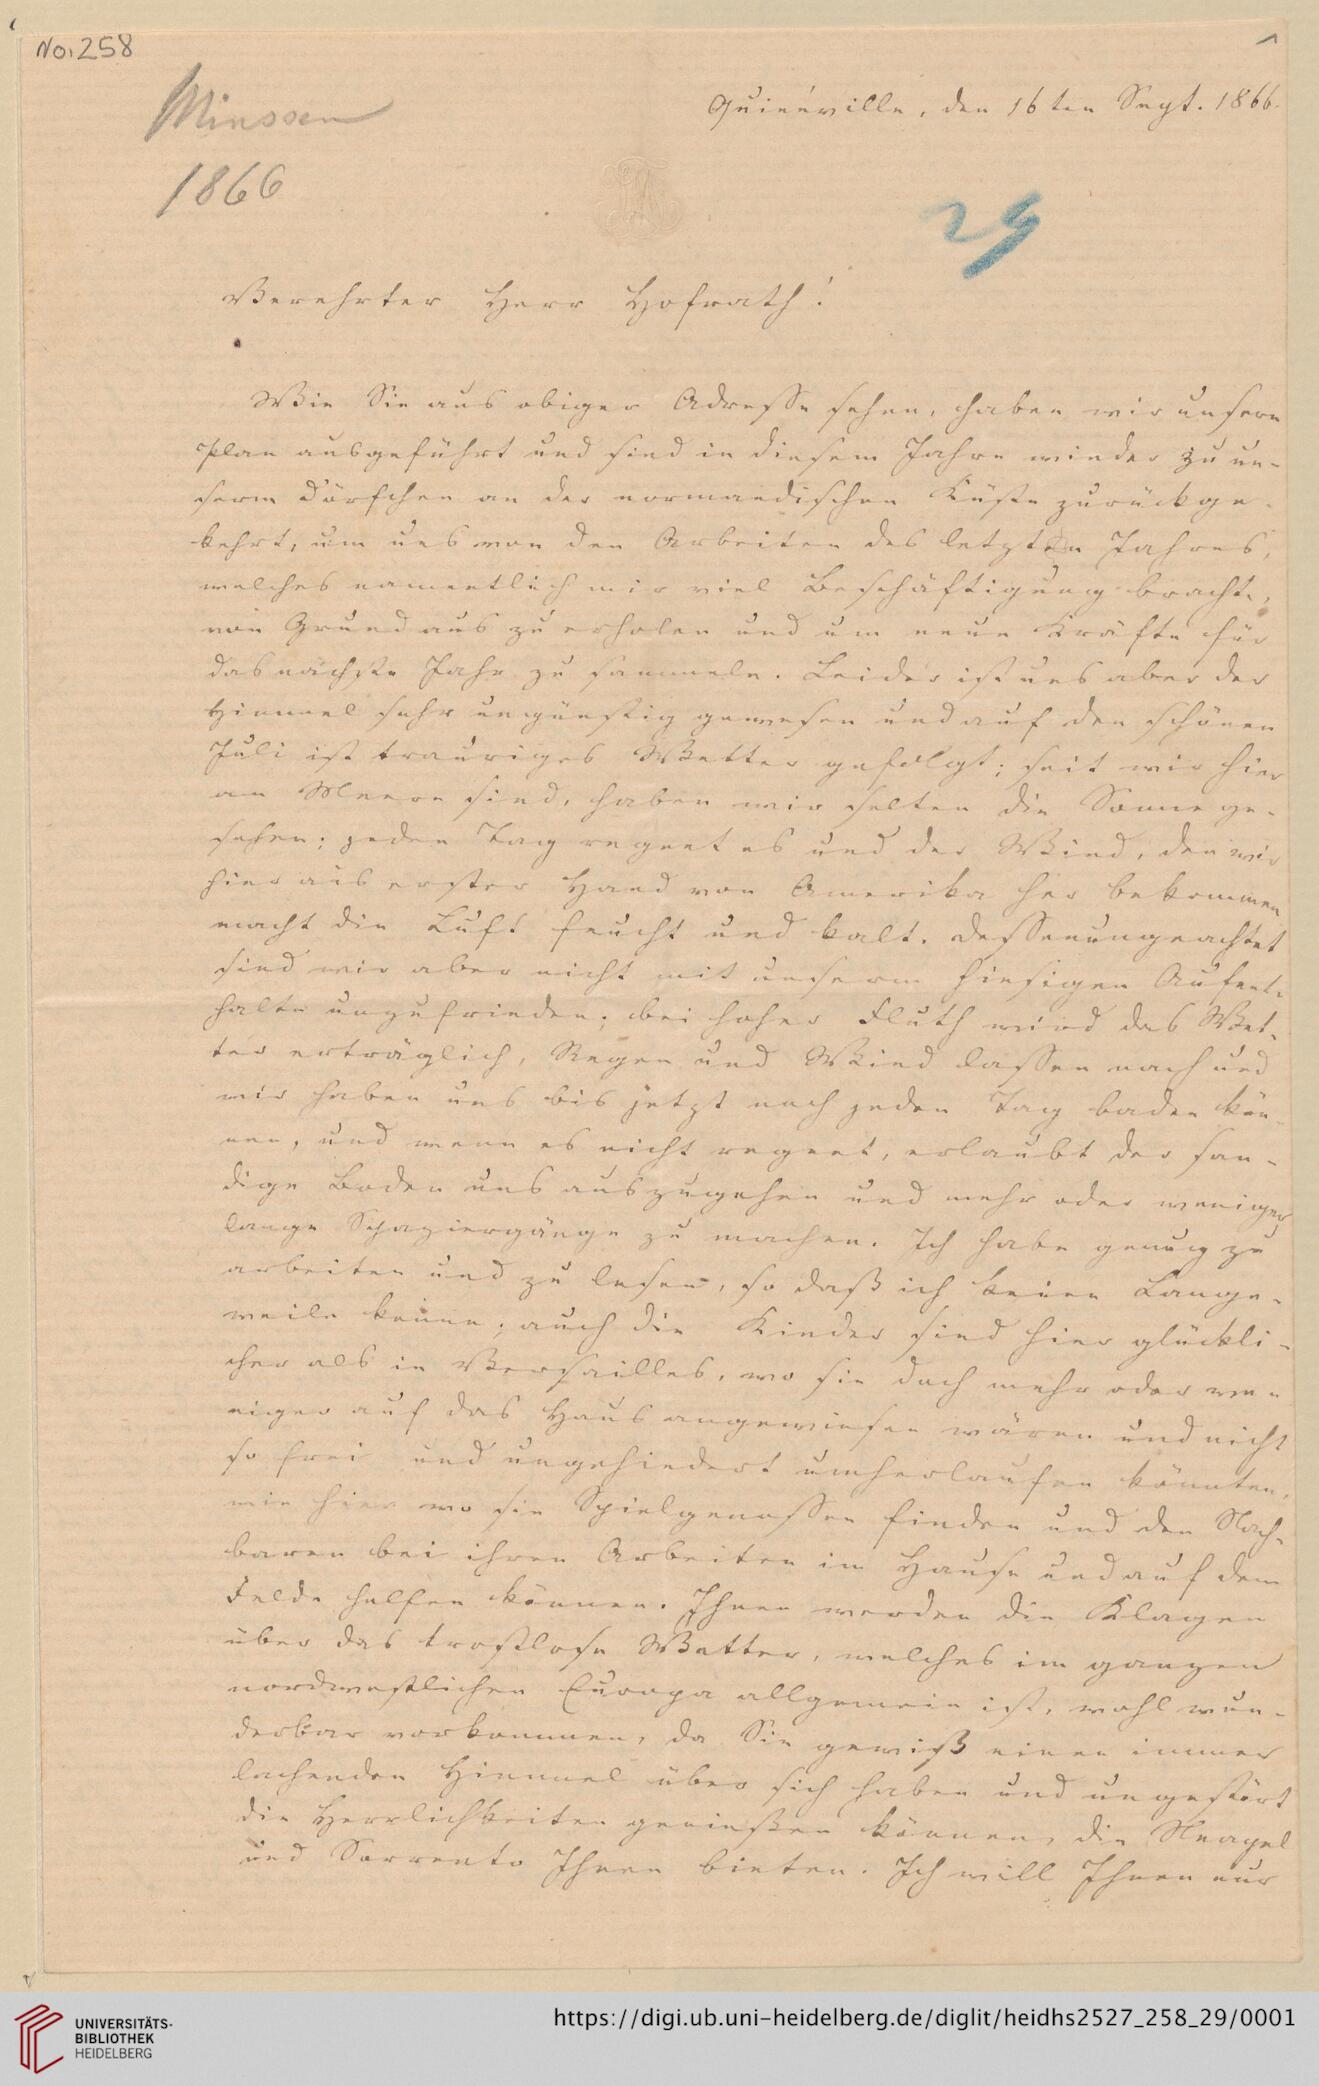 No. 258
1
Minssen
1866
Quinéville, den 16ten Sept. 1866.
29
Verehrter Herr Hofrath!
Wie Sie aus obiger Adresse sehen, haben wir unsern
Plan ausgeführt und sind in diesem Jahre wieder zu un-
serm Dörfchen an der normandischen Küste zurückge-
kehrt, um uns von den Arbeiten des letzten Jahres,
welches namentlich mir viel Beschäftigung brachte,
von Grund aus zu erholen und um neue Kräfte für
das nächste Jahr zu sammeln. Leider ist uns aber der
Himmel sehr ungünstig gewesen und auf den schönen
Juli ist trauriges Wetter gefolgt; seit wir hier
am Meere sind, haben wir selten die Sonne ge-
sehen; jeden Tag regnet es und der Wind, den wir
hier aus erster Hand von Amerika her bekommen
macht die Luft feucht und kalt. Dessenungeachtet
sind wir aber nicht mit unserm hiesigen Aufent-
halte unzufrieden; bei hoher Fluth wird das Wet-
ter erträglich, Regen und Wind lassen nach und
wir haben uns bis jetzt noch jeden Tag baden kön-
nen, und wenn es nicht regnet, erlaubt der san-
dige Boden uns auszugehen und mehr oder weniger
lange Spaziergänge zu machen. Ich habe genug zu
arbeiten und zu lesen, so daß ich keine Lange-
weile kenne; auch die Kinder sind hier glückli-
cher als in Versailles, wo sie doch mehr oder we-
niger auf das Haus angewiesen wären und nicht
so frei und ungehindert umherlaufen könnten,
wie hier wo sie Spielgenossen finden und den Nach-
baren bei ihren Arbeiten im Hause und auf dem
Felde helfen können. Ihnen werden die Klagen
über das trostlose Wetter, welches im ganzen
nordwestlichen Europa allgemein ist, wohl wun-
derbar vorkommen, da Sie gewiß einen immer
lachenden Himmel über sich haben und ungestört
die Herrlichkeiten genießen können, die Neapel
und Sorrento Ihnen bieten. Ich will Ihnen nur
UNIVERSITÄTS-
BIBLIOTHEK
HEIDELBERG
https://digi.ub.uni-heidelberg.de/diglit/heidhs2527_258_29/0001